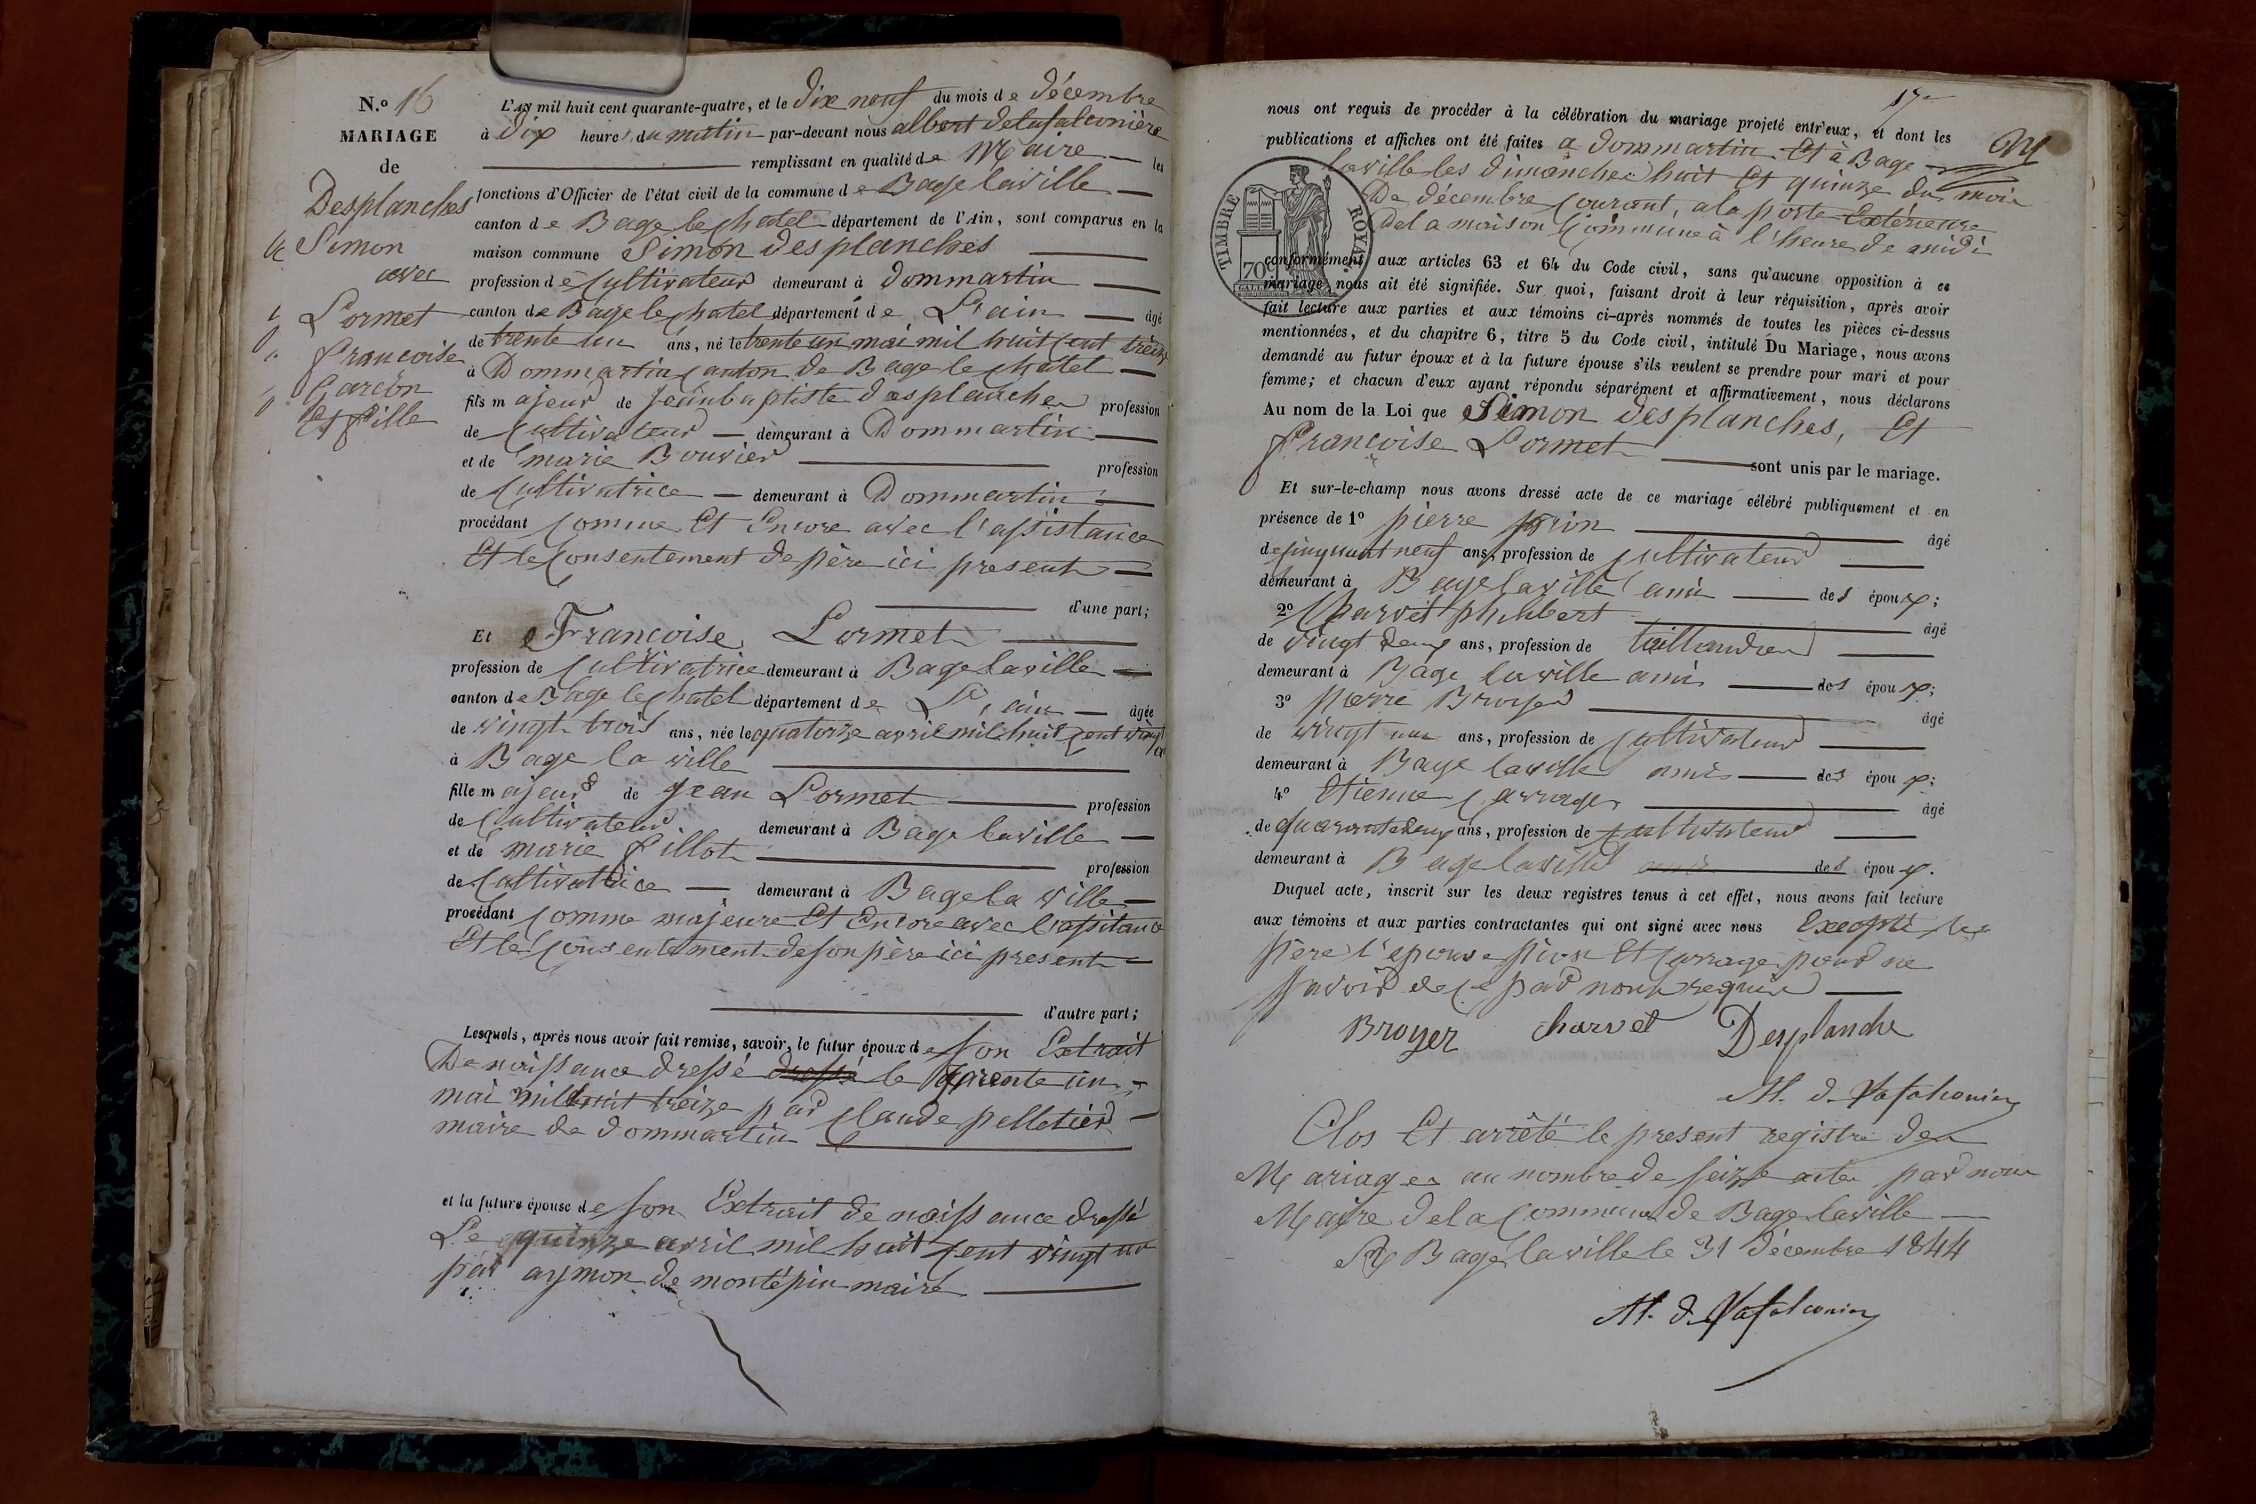 N.º 16
MARIAGE
de
Desplanches
Simon
avec
Cormet
françoise
Garcon
Et fille
L'AN mil huit cent quarante-quatre, et le dix neuf du mois de décembre
à dix heures du matin par-devant nous albert delafalconière
remplissant en qualité de Maire les
fonctions d'Officier de l'état civil de la commune de Bage laville
canton de Bage le chatel département de l'Ain, sont comparus en la
maison commune Simon desplanches
profession de Cultivateur demeurant à dommartin
canton de Bage le chatel département de L'ain âgé
de trente un ans, né le trente un mai mil huit cent treize
à Dommartin canton de Bage le chatel
fils majeur de jeanbaptiste desplanches profession
de Cultivateur demeurant à Dommartin
et de marie Bouvier profession
de Cultivatrice demeurant à Dommartin
procédant comme Et Encore avec l'assistance
Et le Consentement de père ici present
d'une part;
Et Françoise Cormet
profession de Cultivatrice demeurant à Bage laville
canton de Bage le chatel département de L'ain âgée
de vingt trois ans, née le quatorze avril mil huit cent vingt
à Bage la ville
fille majeure de jean Cormet profession
de Cultivateur demeurant à Bage laville
et de marie fillot profession
de Cultivatrice demeurant à Bage la ville
procédant comme majeure Et Encore avec l'assistance
Et le Consentement de son père ici present
d'autre part;
Lesquels, après nous avoir fait remise, savoir, le futur époux de son Extrait
De naissance dressé dressé le trente un
mai mil huit treize par claude pelletier
maire de dommartin
et la future épouse de son Extrait de naissance dressé
Le quinze avril mil huit cent vingt un
par aymon de montépin maire
17
nous ont requis de procéder à la célébration du mariage projeté entr'eux, et dont les
publications et affiches ont été faites a dommartin Et à Bage
laville les dimanches huit Et quinze du mois
De décembre courant, a la porte Extérieure
De la maison Commune à l'heure de midi
TIMBRE ROYAL
70
conformément aux articles 63 et 64 du Code civil, sans qu'aucune opposition à ce
mariage nous ait été signifiée. Sur quoi, faisant droit à leur réquisition, après avoir
fait lecture aux parties et aux témoins ci-après nommés de toutes les pièces ci-dessus
mentionnées, et du chapitre 6, titre 5 du Code civil, intitulé Du Mariage, nous avons
demandé au futur époux et à la future épouse s'ils veulent se prendre pour mari et pour
femme; et chacun d'eux ayant répondu séparément et affirmativement, nous déclarons
Au nom de la Loi que Simon desplanches, Et
françoise Cormet sont unis par le mariage.
Et sur-le-champ nous avons dressé acte de ce mariage célébré publiquement et en
présence de 1º pierre pion âgé
de cinquant neuf ans, profession de cultivateur
demeurant à Bage laville ami des époux;
2º Charvet philibert âgé
de vingt deux ans, profession de taillandier
demeurant à Bage laville ami des époux;
3º pierre Broyer âgé
de vingt un ans, profession de cultivateur
demeurant à Bage laville ami des époux;
4º Etienne Carrage âgé
de quarantedeux ans, profession de cultivateur
demeurant à Bage laville ami des époux.
Duquel acte, inscrit sur les deux registres tenus à cet effet, nous avons fait lecture
aux témoins et aux parties contractantes qui ont signé avec nous Excepté les
père l'epouse pion Et Carrage pour ne
savoir de ce par nous requis
Broyer charvet Desplanche
Al. d. Lafalconière
Clos Et arrêté le present registre des
Mariages au nombre de seize actes par nous
Maire de la Commune de Bage laville
A Bage laville le 31 décembre 1844
Al. d. Lafalconière